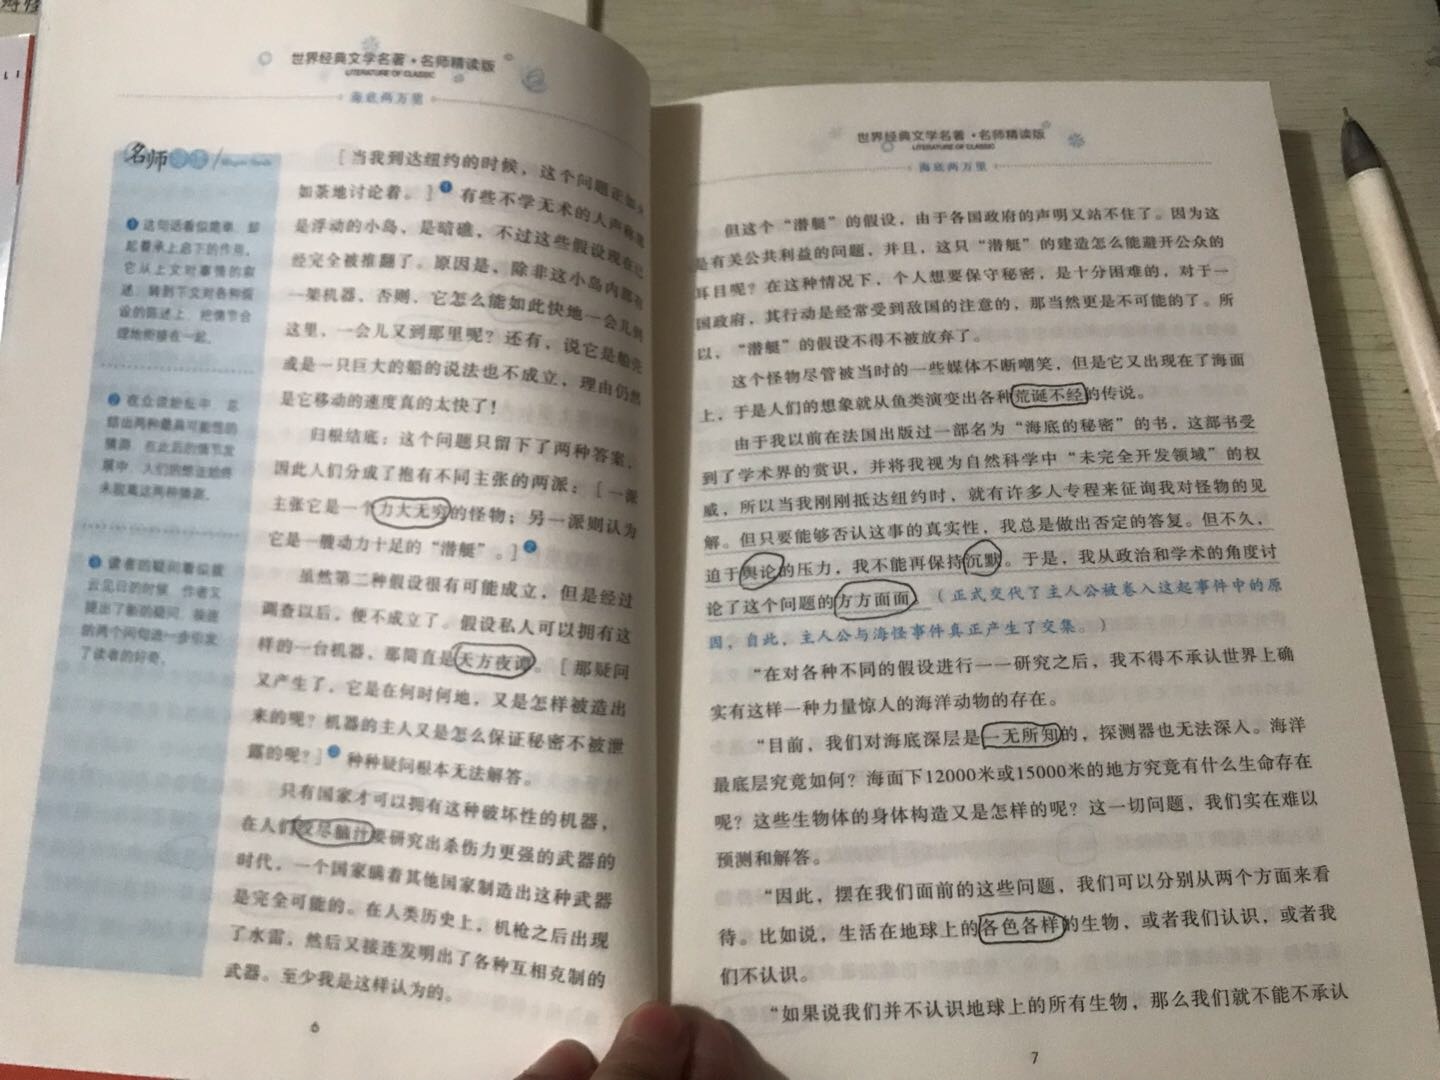 世界经典文学名著·名师精读版
LITERATURE OF CLASSIC
海底两万里
名师
❶ 这句话看似简单，却
起着承上启下的作用，
它从上文对事情的叙
述，转到下文对各种假
设的陈述上，把情节合
理地衔接在一起。
❷ 在众说纷纭中，总
结出两种最具可能性的
猜测，在此后的情节发
展中，人们的想法始终
未脱离这两种猜测。
❸ 读者的疑问看似拨
云见日的时候，作者又
提出了新的疑问，接连
的两个问句进一步引发
了读者的好奇。
[当我到达纽约的时候，这个问题正如火
如荼地讨论着。]❶ 有些不学无术的人声称
是浮动的小岛，是暗礁，不过这些假设现在已
经完全被推翻了。原因是，除非这小岛内部有
一架机器，否则，它怎么能如此快地一会儿到
这里，一会儿又到那里呢？还有，说它是船壳
或是一只巨大的船的说法也不成立，理由仍然
是它移动的速度真的太快了！
归根结底：这个问题只留下了两种答案，
因此人们分成了抱有不同主张的两派：[一派
主张它是一个力大无穷的怪物；另一派则认为
它是一艘动力十足的“潜艇”。]❷
虽然第二种假设很有可能成立，但是经过
调查以后，便不成立了。假设私人可以拥有这
样的一台机器，那简直是天方夜谭。[那疑问
又产生了，它是在何时何地，又是怎样被造出
来的呢？机器的主人又是怎么保证秘密不被泄
露的呢？]❸ 种种疑问根本无法解答。
只有国家才可以拥有这种破坏性的机器，
在人们绞尽脑汁要研究出杀伤力更强的武器的
时代，一个国家瞒着其他国家制造出这种武器
是完全可能的。在人类历史上，机枪之后出现
了水雷，然后又接连发明出了各种互相克制的
武器。至少我是这样认为的。
6
世界经典文学名著·名师精读版
LITERATURE OF CLASSIC
海底两万里
但这个“潜艇”的假设，由于各国政府的声明又站不住了。因为这
是有关公共利益的问题，并且，这只“潜艇”的建造怎么能避开公众的
耳目呢？在这种情况下，个人想要保守秘密，是十分困难的，对于一
国政府，其行动是经常受到敌国的注意的，那当然更是不可能的了。所
以，“潜艇”的假设不得不被放弃了。
这个怪物尽管被当时的一些媒体不断嘲笑，但是它又出现在了海面
上，于是人们的想象就从鱼类演变出各种荒诞不经的传说。
由于我以前在法国出版过一部名为“海底的秘密”的书，这部书受
到了学术界的赏识，并将我视为自然科学中“未完全开发领域”的权
威，所以当我刚刚抵达纽约时，就有许多人专程来征询我对怪物的见
解。但只要能够否认这事的真实性，我总是做出否定的答复。但不久，
迫于舆论的压力，我不能再保持沉默。于是，我从政治和学术的角度讨
论了这个问题的方方面面。（正式交代了主人公被卷入这起事件中的原
因，自此，主人公与海怪事件真正产生了交集。）
“在对各种不同的假设进行一一研究之后，我不得不承认世界上确
实有这样一种力量惊人的海洋动物的存在。
“目前，我们对海底深层是一无所知的，探测器也无法深入。海洋
最底层究竟如何？海面下12000米或15000米的地方究竟有什么生命存在
呢？这些生物体的身体构造又是怎样的呢？这一切问题，我们实在难以
预测和解答。
“因此，摆在我们面前的这些问题，我们可以分别从两个方面来看
待。比如说，生活在地球上的各色各样的生物，或者我们认识，或者我
们不认识。
“如果说我们并不认识地球上的所有生物，那么我们就不能不承认
7